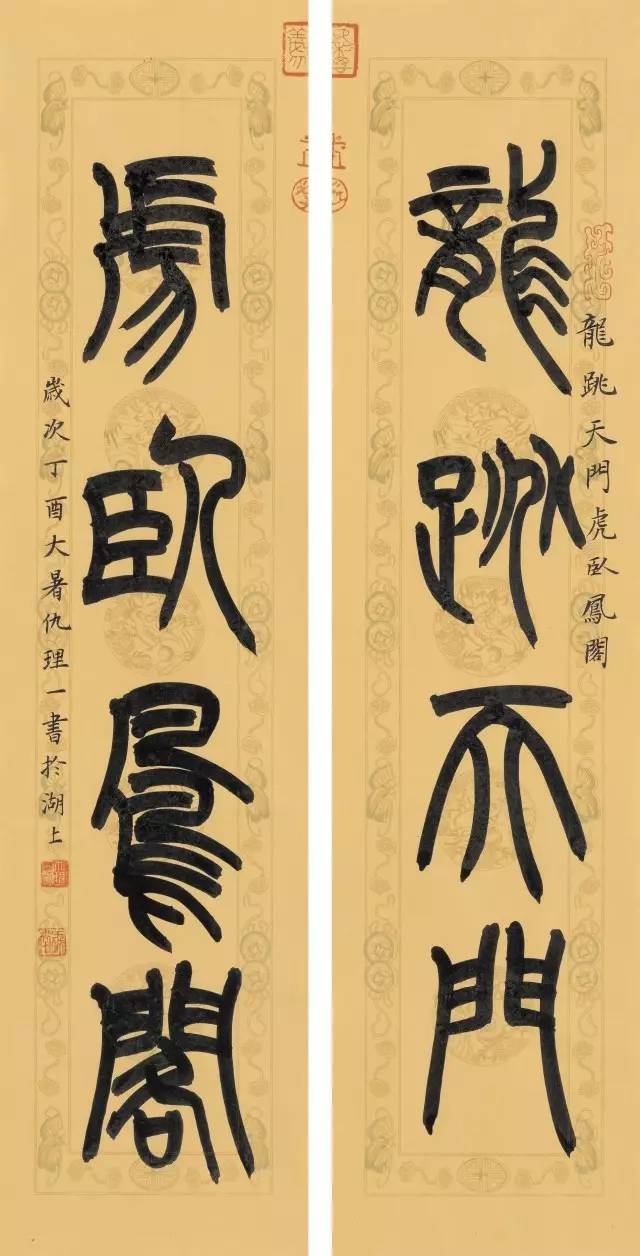 龍跳天門虎臥鳳閣
龍跳天門
虎臥鳳閣
歲次丁酉大暑仇理一書於湖上